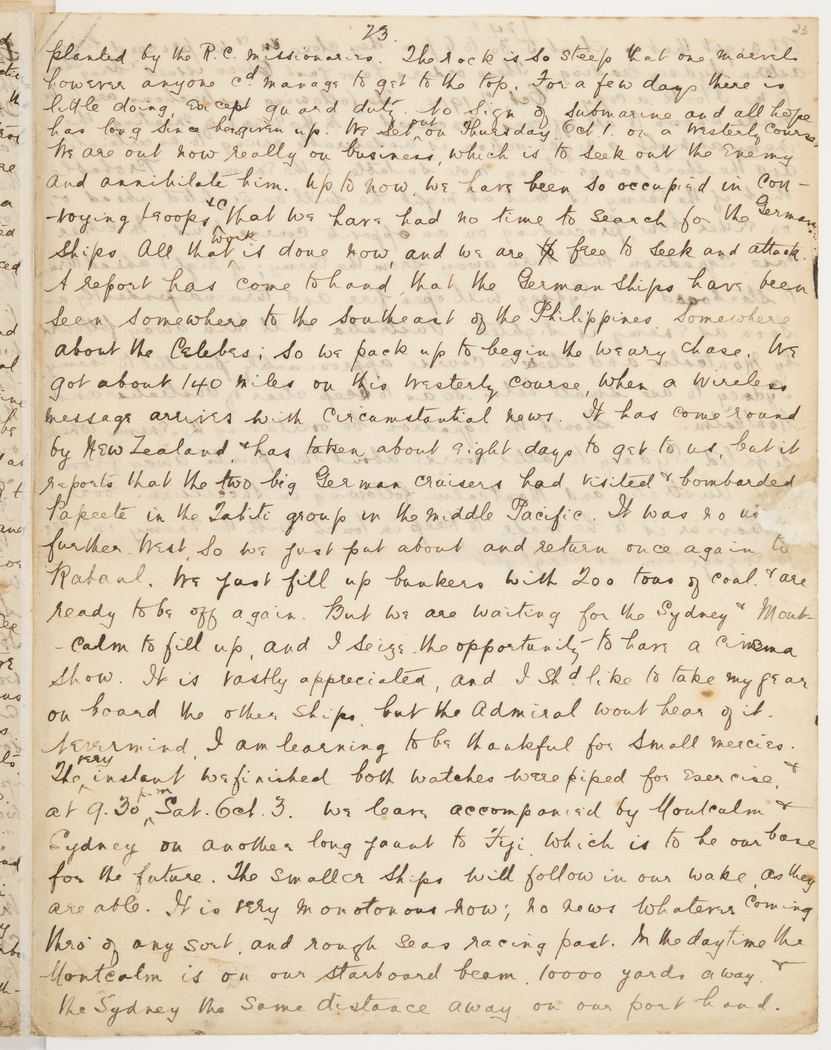 23.
23
planted by the R.C. missionaries. The rock is so steep that one marvels
however anyone cd manage to get to the top. For a few days there is
little doing, except guard duty. No sign of submarine and all hope
has long since been given up. We set out on Thursday, Oct 1. on a westerly course.
We are out now really on business, which is to seek out the Enemy
and annihilate him. Up to now, we have been so occupied in con-
-voying troops &c that we have had no time to search for the German
ships. All that work is done now, and we are free to seek and attack.
A report has come to hand, that the German ships have been
seen somewhere to the Southeast of the Philippines somewhere
about the Celebes; so we pack up to begin the weary chase. We
got about 140 miles on this westerly course, when a wireless
message arrives with circumstantial news. It has come round
by New Zealand, & has taken about eight days to get to us, but it
reports that the two big German cruisers had visited & bombarded
Papeete in the Tahiti group in the middle Pacific. It was no us
further West, so we just put about and return once again to
Rabaul. We just fill up bunkers with 200 tons of coal & are
ready to be off again. But we are waiting for the Sydney & Mont-
-calm to fill up, and I seize the opportunity to have a cinema
show. It is vastly appreciated, and I shd like to take my gear
on board the other ships, but the Admiral wont hear of it.
Nevermind, I am learning to be thankful for small mercies.
The very instant we finished both watches were piped for exercise, &
at 9.30 p.m, Sat. Oct. 3. we leave accompanied by Montcalm &
Sydney on another long jaunt to Fiji which is to be our base
for the future. The smaller ships will follow in our wake, as they
are able. It is very monotonous now; no news whatever coming
thro' of any sort, and rough seas racing past. In the daytime the
Montcalm is on our starboard beam, 10000 yards away &
the Sydney the same distance away on our port hand.